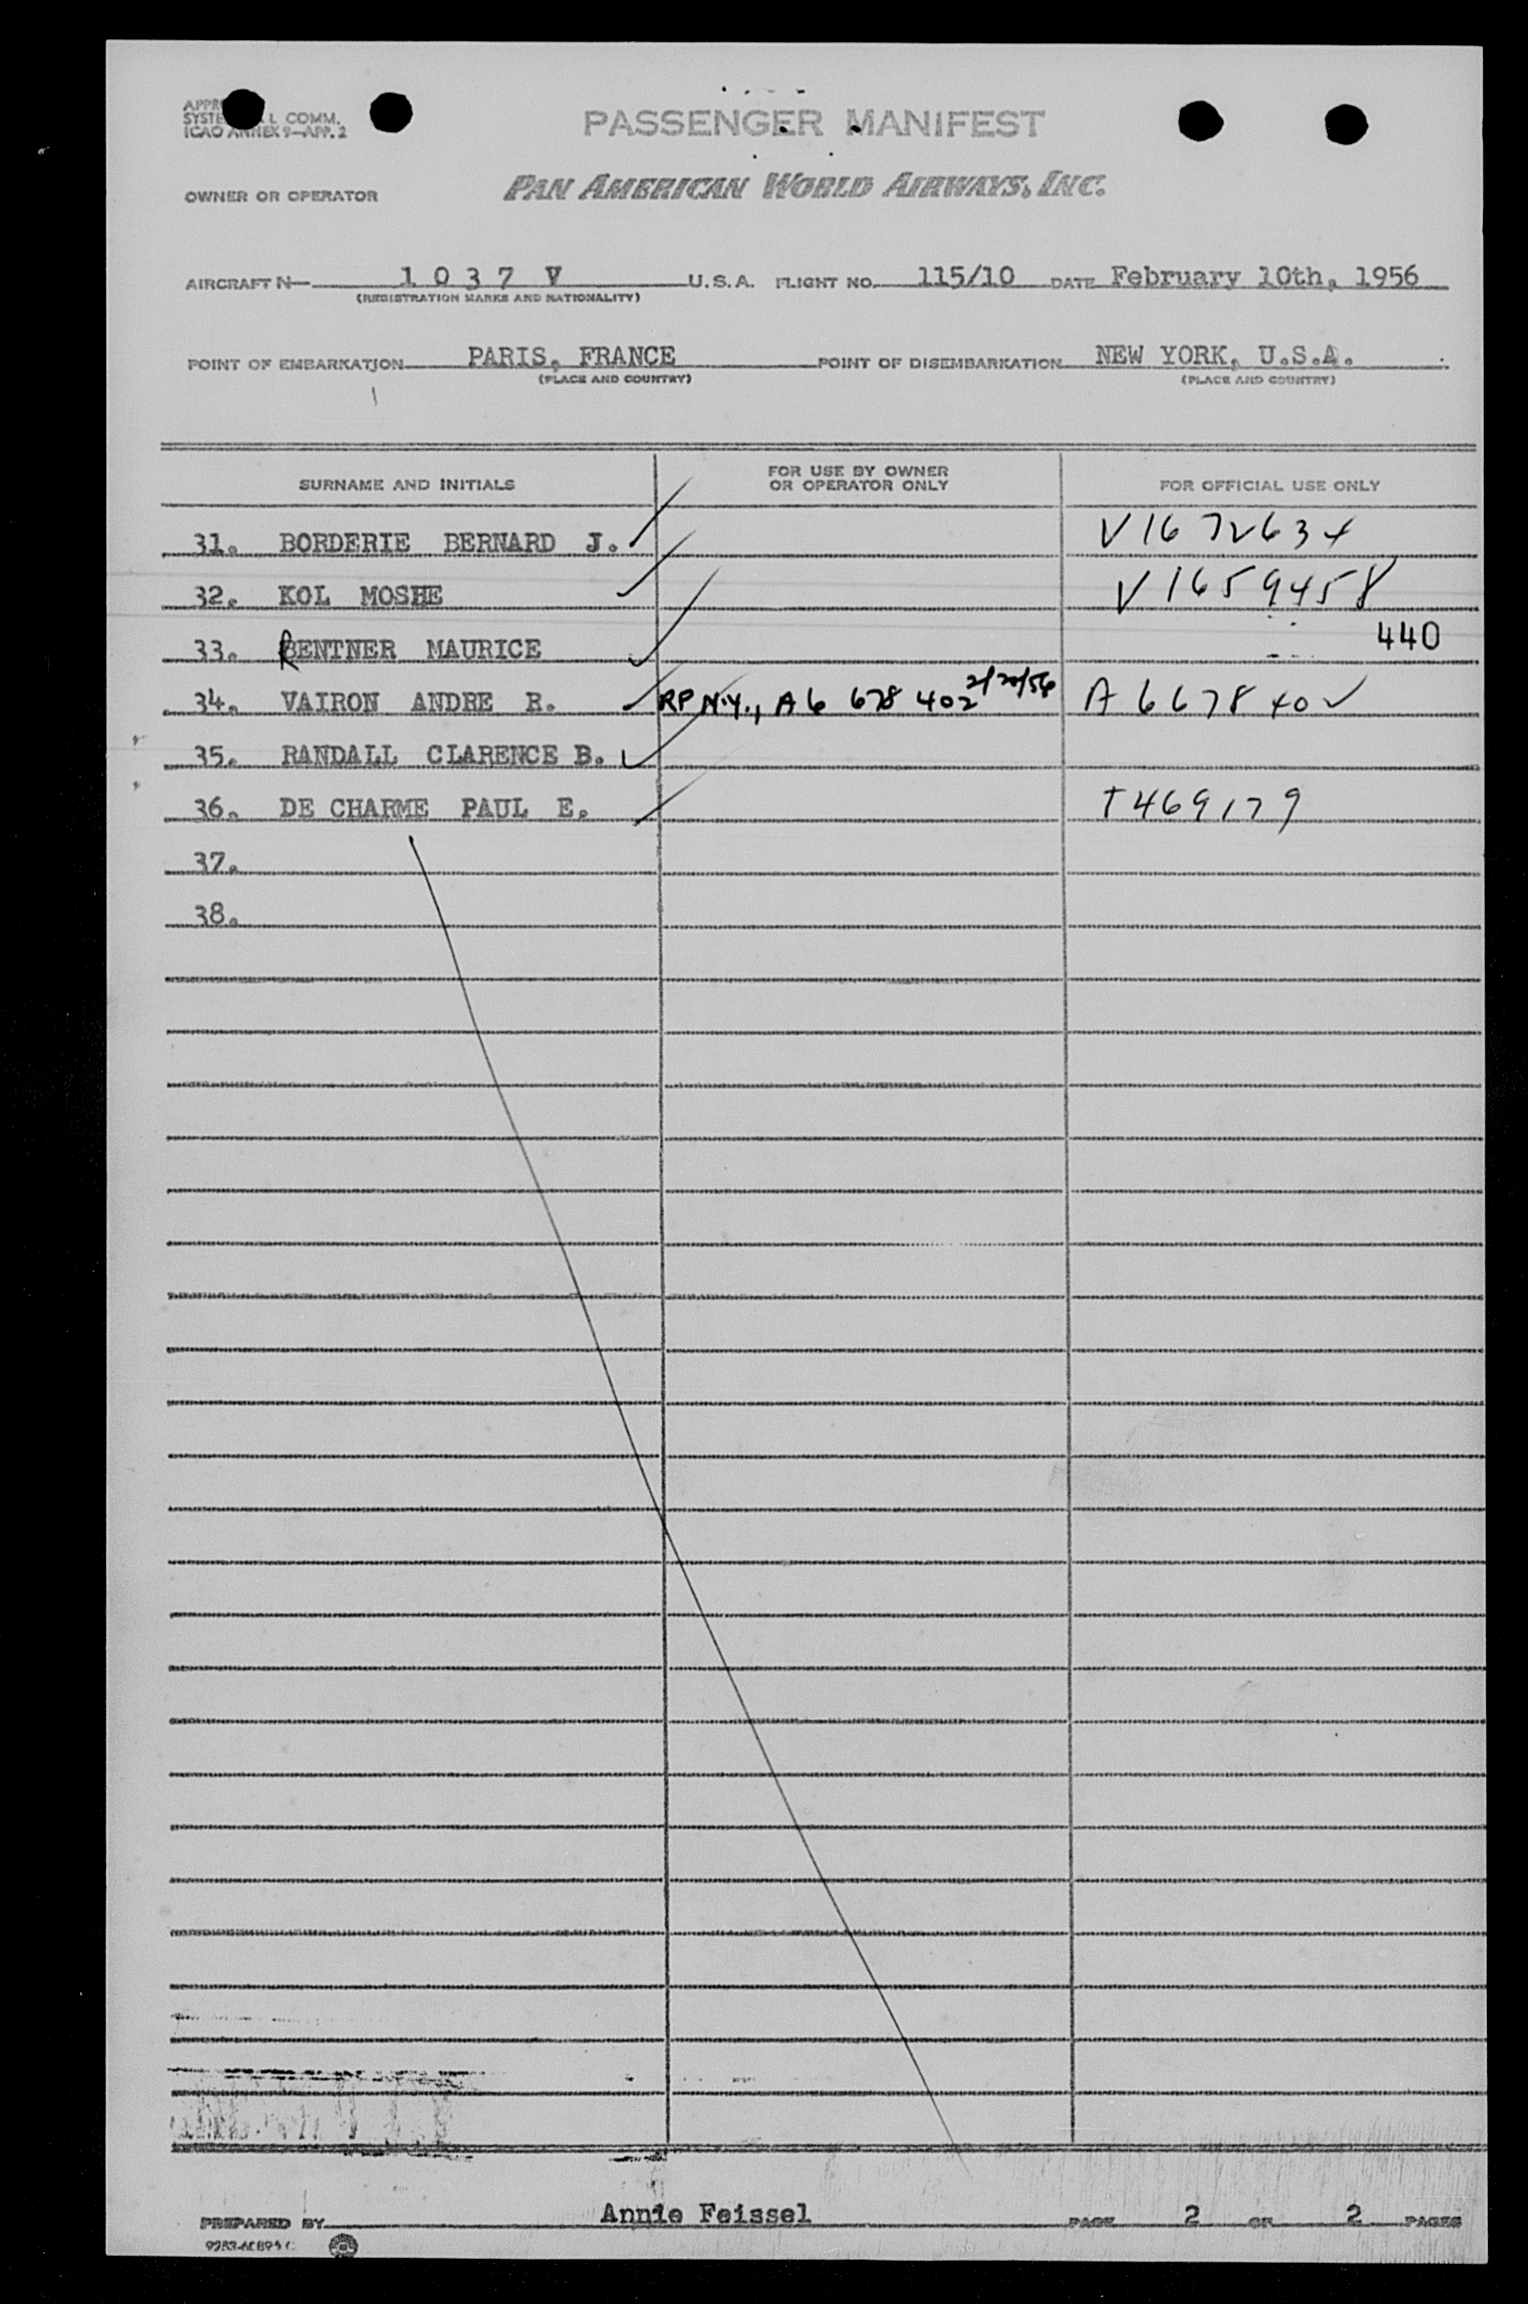 SYSTE L COMM.
ICAO ANNEX 9—APP. 2
PASSENGER MANIFEST
OWNER OR OPERATOR PAN AMERICAN WORLD AIRWAYS, INC.
AIRCRAFT N 1 0 3 7 V U.S.A. FLIGHT NO. 115/10 DATE February 10th, 1956
(REGISTRATION MARKS AND NATIONALITY)
POINT OF EMBARKATION PARIS, FRANCE POINT OF DISEMBARKATION NEW YORK, U.S.A.
(PLACE AND COUNTRY) (PLACE AND COUNTRY)
SURNAME AND INITIALS FOR USE BY OWNER OR OPERATOR ONLY FOR OFFICIAL USE ONLY
31. BORDERIE BERNARD J. V 1672634
32. KOL MOSHE V 1659458
33. RENTNER MAURICE 440
34. VAIRON ANDRE R. RP N.Y., A6 678 402 2/20/56 A 6678402
35. RANDALL CLARENCE B.
36. DE CHARME PAUL E. T469179
37.
38.
PREPARED BY Annie Feissel PAGE 2 OF 2 PAGES